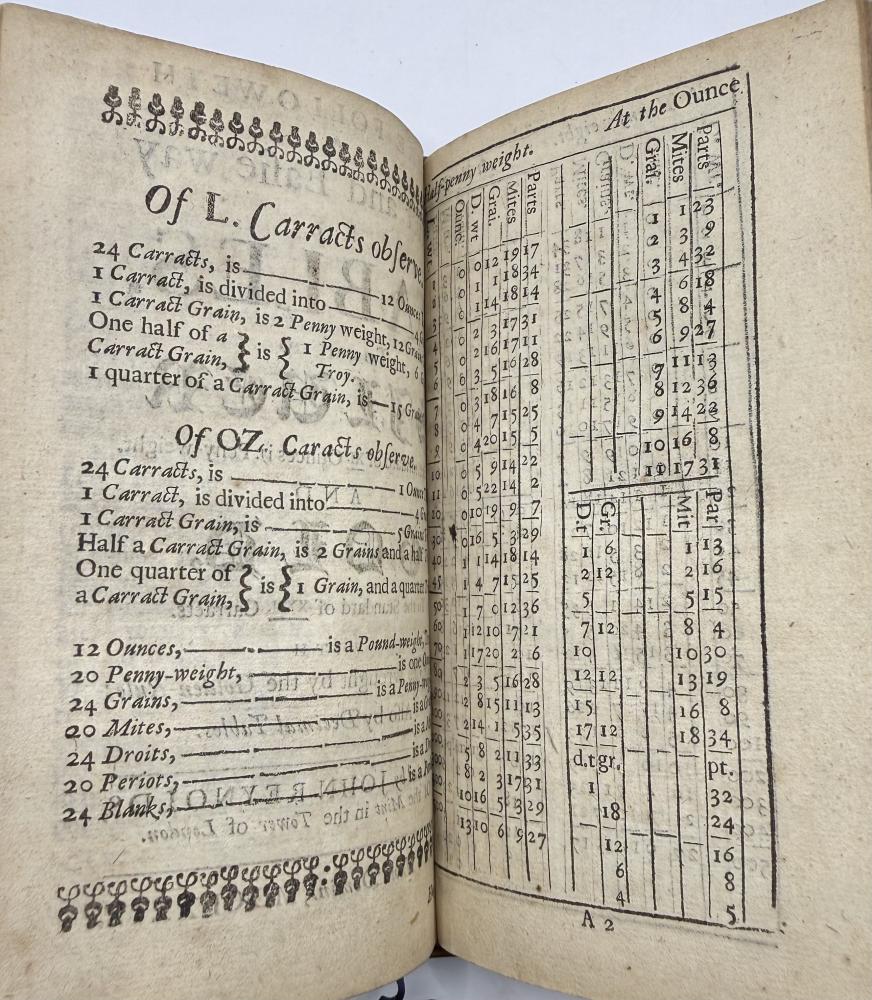 Of L. Carracts observe.
24 Carracts, is 12 Ounces
1 Carract, is divided into 4
1 Carract Grain, is 2 Penny weight, 12 Grains
One half of a Carract Grain, } is { 1 Penny weight, 6
Troy.
1 quarter of a Carract Grain, is — 15 Grai
Of OZ. Caracts observe.
24 Carracts, is 1 Ounce
1 Carract, is divided into 4
1 Carract Grain, is 5 Grains
Half a Carract Grain, is 2 Grains and a half
One quarter of a Carract Grain, } is { 1 Grain, and a quarter
12 Ounces, is a Pound-weight,
20 Penny-weight, is one
24 Grains, is a Penny-
20 Mites, is a
24 Droits, is a
20 Periots, is a
24 Blanks, is a
Half-penny weight. At the Ounce.
Ounc. D. wt Grai. Mites Parts
0 0 12 19 17
0 1 1 18 34
0 1 14 18 14
0 2 3 17 31
0 2 16 17 11
0 3 5 16 28
0 3 18 16 8
0 4 7 15 25
0 4 20 15 5
10 0 5 9 14 22
11 0 5 22 14 2
0 10 19 9 7
30 0 16 5 3 29
40 1 1 14 18 14
45 1 4 7 15 25
50 1 7 0 12 36
60 1 12 10 17 21
70 1 17 20 2 6
2 3 5 16 28
2 8 15 11 13
2 14 1 5 35
5 8 2 11 33
8 2 3 17 31
10 16 5 3 29
13 10 6 9 27
Grai. Mites Parts
1 1 23
2 3 9
3 4 32
4 6 18
5 8 4
6 9 27
7 11 13
8 12 36
9 14 22
10 16 8
11 17 31
Dr Gr. Mit Par
1 6 1 13
2 12 2 16
5 5 15
7 12 8 4
10 10 30
12 12 13 19
15 16 8
17 12 18 34
d.t gr. pt.
1 32
18 24
12 16
6 8
4 5
A 2